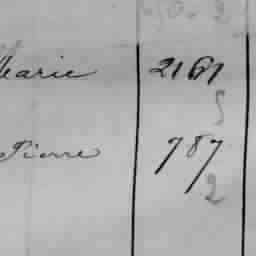 Marie 2161
5
Pierre 787
2